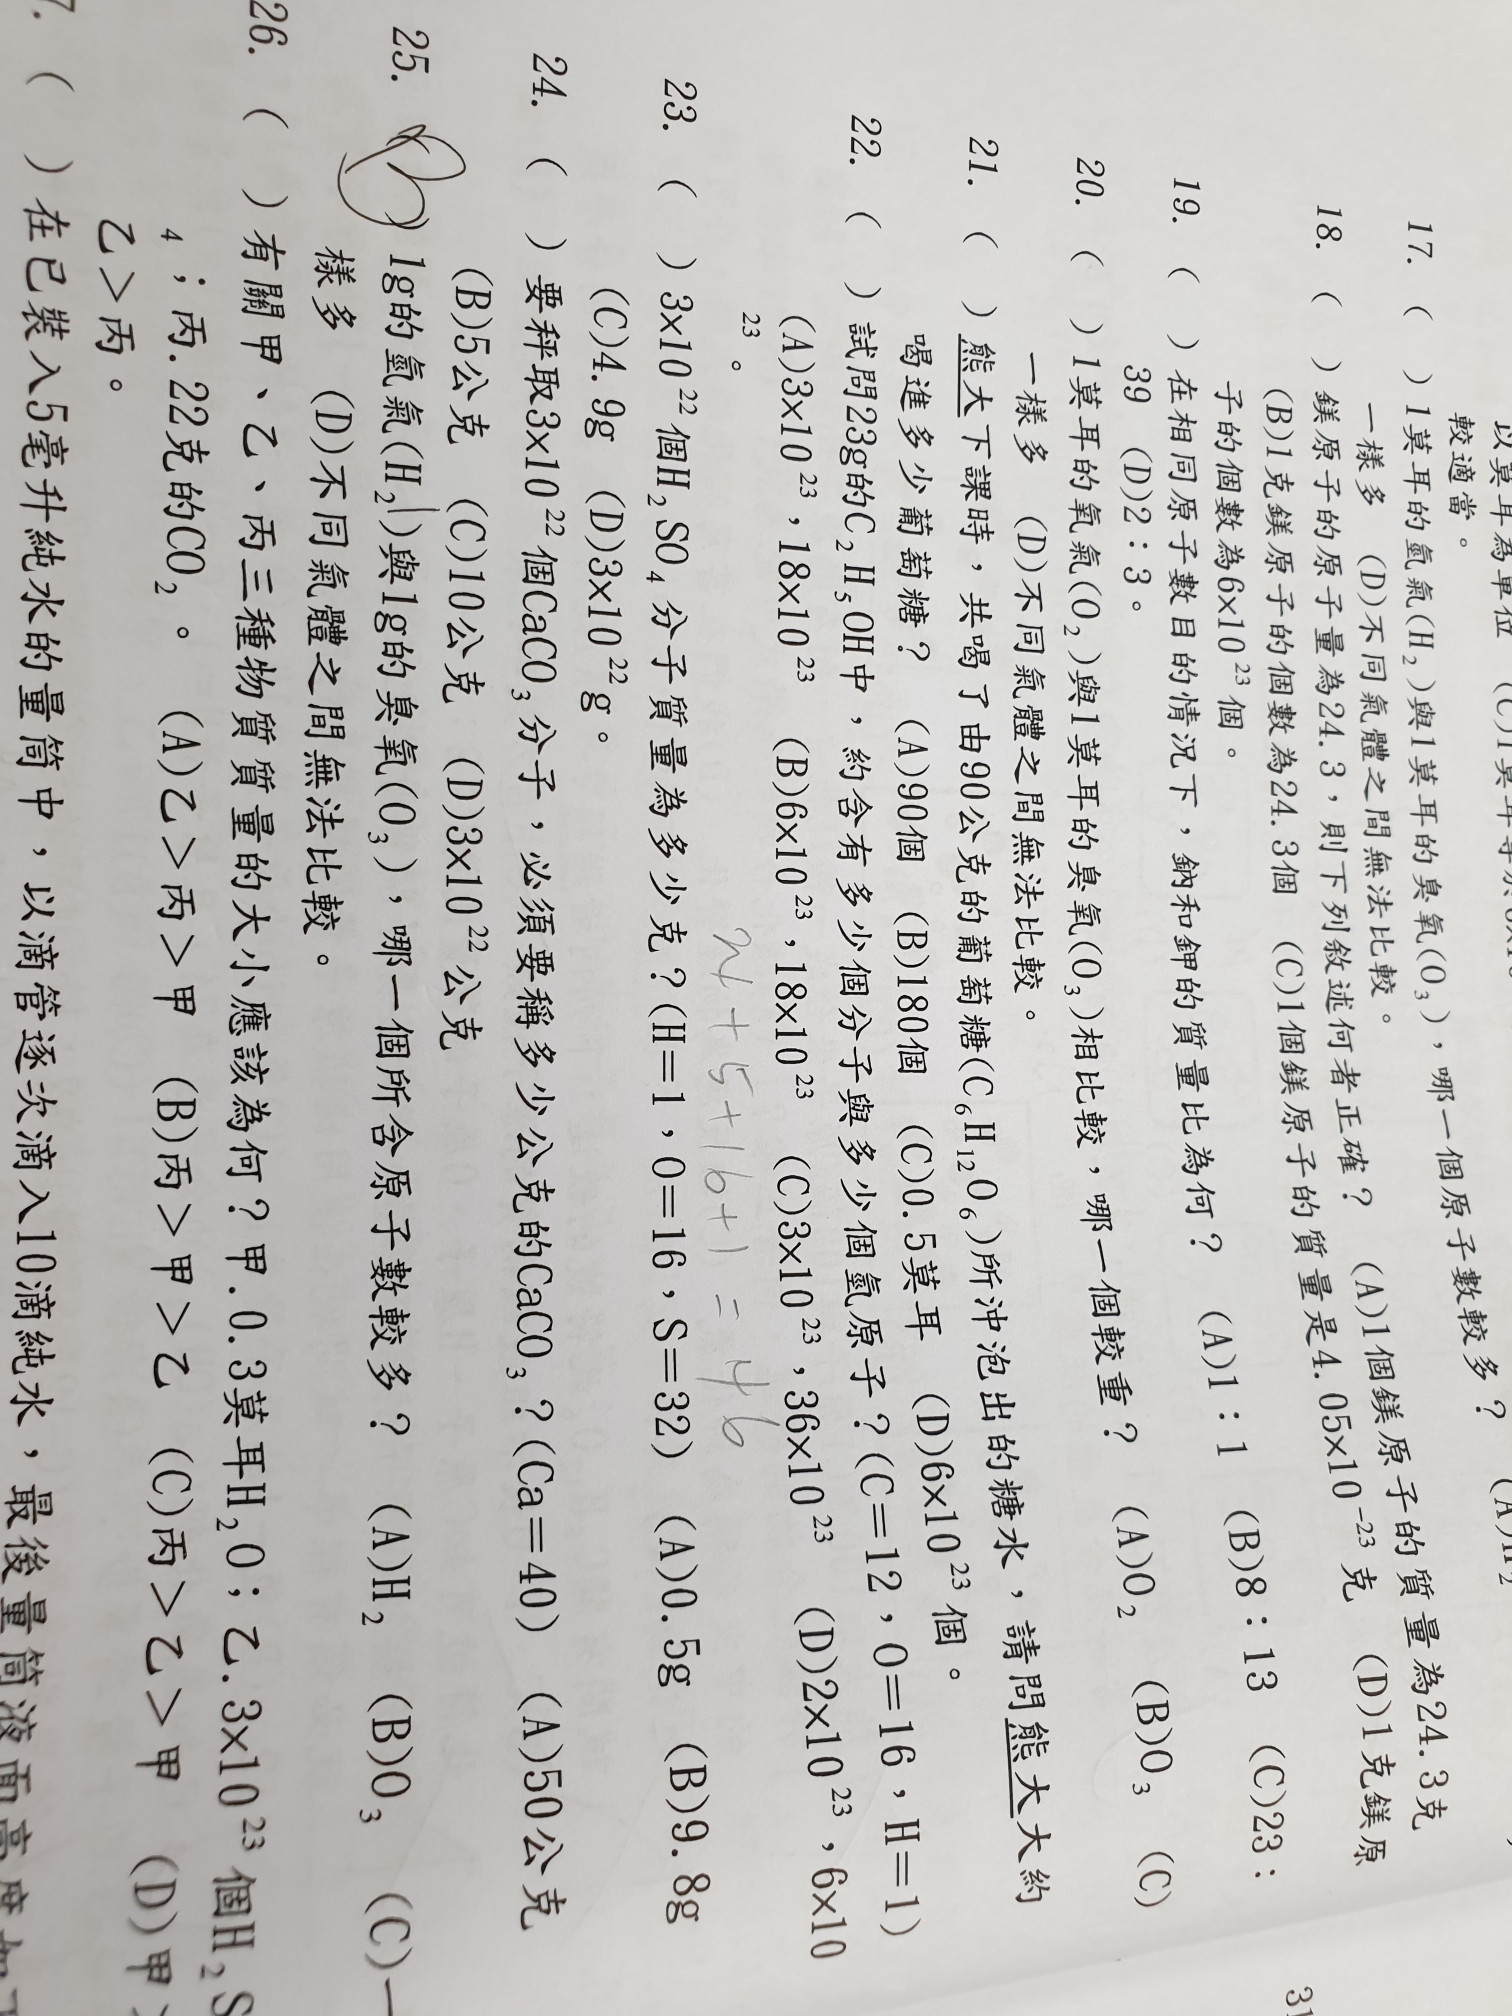 以莫耳為單位 (C)1莫耳
較適當。
17. ( )1莫耳的氫氣(H₂)與1莫耳的臭氧(O₃)，哪一個原子數較多？ (A)H₂
一樣多 (D)不同氣體之間無法比較。
18. ( )鎂原子的原子量為24.3，則下列敘述何者正確？ (A)1個鎂原子的質量為24.3克
(B)1克鎂原子的個數為24.3個 (C)1個鎂原子的質量是4.05x10⁻²³克 (D)1克鎂原
子的個數為6x10²³個。
19. ( )在相同原子數目的情況下，鈉和鉀的質量比為何？ (A)1：1 (B)8：13 (C)23：
39 (D)2：3。
20. ( )1莫耳的氧氣(O₂)與1莫耳的臭氧(O₃)相比較，哪一個較重？ (A)O₂ (B)O₃ (C)
一樣多 (D)不同氣體之間無法比較。
21. ( )熊大下課時，共喝了由90公克的葡萄糖(C₆H₁₂O₆)所沖泡出的糖水，請問熊大大約
喝進多少葡萄糖？ (A)90個 (B)180個 (C)0.5莫耳 (D)6x10²³個。
22. ( )試問23g的C₂H₅OH中，約含有多少個分子與多少個氫原子？(C＝12，O＝16，H＝1)
(A)3x10²³，18x10²³ (B)6x10²³，18x10²³ (C)3x10²³，36x10²³ (D)2x10²³，6x10
²³。
24+5+16+1=46
23. ( )3x10²²個H₂SO₄分子質量為多少克？(H＝1，O＝16，S＝32) (A)0.5g (B)9.8g
(C)4.9g (D)3x10²²g。
24. ( )要秤取3x10²²個CaCO₃分子，必須要稱多少公克的CaCO₃？(Ca＝40) (A)50公克
(B)5公克 (C)10公克 (D)3x10²²公克
25. ( )1g的氫氣(H₂)與1g的臭氧(O₃)，哪一個所含原子數較多？ (A)H₂ (B)O₃ (C)一
樣多 (D)不同氣體之間無法比較。
26. ( )有關甲、乙、丙三種物質質量的大小應該為何？甲.0.3莫耳H₂O；乙.3x10²³個H₂S
₄；丙.22克的CO₂。 (A)乙＞丙＞甲 (B)丙＞甲＞乙 (C)丙＞乙＞甲 (D)甲＞
乙＞丙。
7. ( )在已裝入5毫升純水的量筒中，以滴管逐次滴入10滴純水，最後量筒液面高度如下